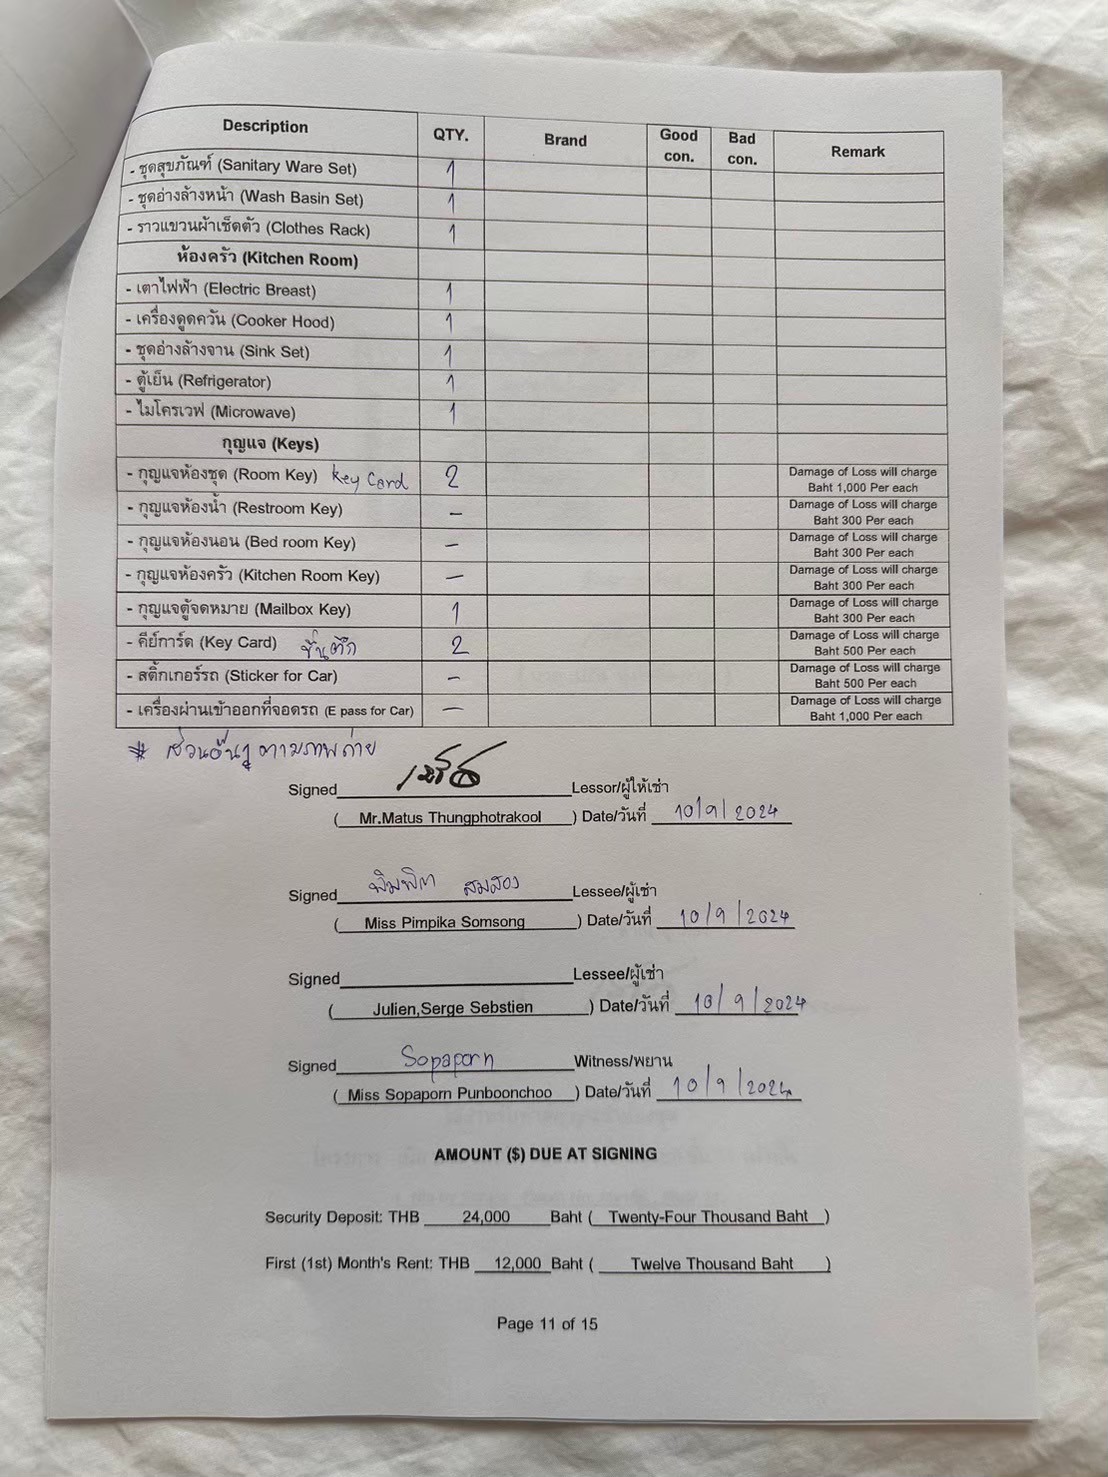 Description QTY. Brand Good con. Bad con. Remark
- ชุดสุขภัณฑ์ (Sanitary Ware Set) 1
- ชุดอ่างล้างหน้า (Wash Basin Set) 1
- ราวแขวนผ้าเช็ดตัว (Clothes Rack) 1
ห้องครัว (Kitchen Room)
- เตาไฟฟ้า (Electric Breast) 1
- เครื่องดูดควัน (Cooker Hood) 1
- ชุดอ่างล้างจาน (Sink Set) 1
- ตู้เย็น (Refrigerator) 1
- ไมโครเวฟ (Microwave) 1
กุญแจ (Keys)
- กุญแจห้องชุด (Room Key) Key Card 2 Damage of Loss will charge Baht 1,000 Per each
- กุญแจห้องน้ำ (Restroom Key) - Damage of Loss will charge Baht 300 Per each
- กุญแจห้องนอน (Bed room Key) - Damage of Loss will charge Baht 300 Per each
- กุญแจห้องครัว (Kitchen Room Key) - Damage of Loss will charge Baht 300 Per each
- กุญแจตู้จดหมาย (Mailbox Key) 1 Damage of Loss will charge Baht 300 Per each
- คีย์การ์ด (Key Card) ขึ้นตึก 2 Damage of Loss will charge Baht 500 Per each
- สติ้กเกอร์รถ (Sticker for Car) - Damage of Loss will charge Baht 500 Per each
- เครื่องผ่านเข้าออกที่จอดรถ (E pass for Car) - Damage of Loss will charge Baht 1,000 Per each
* ส่วนอื่นๆ ตามภาพถ่าย
Signed Lessor/ผู้ให้เช่า
( Mr.Matus Thungphotrakool ) Date/วันที่ 10/9/2024
Signed พิมพิกา สมสอง Lessee/ผู้เช่า
( Miss Pimpika Somsong ) Date/วันที่ 10/9/2024
Signed Lessee/ผู้เช่า
( Julien,Serge Sebstien ) Date/วันที่ 10/9/2024
Signed Sopaporn Witness/พยาน
( Miss Sopaporn Punboonchoo ) Date/วันที่ 10/9/2024
AMOUNT ($) DUE AT SIGNING
Security Deposit: THB 24,000 Baht ( Twenty-Four Thousand Baht )
First (1st) Month's Rent: THB 12,000 Baht ( Twelve Thousand Baht )
Page 11 of 15